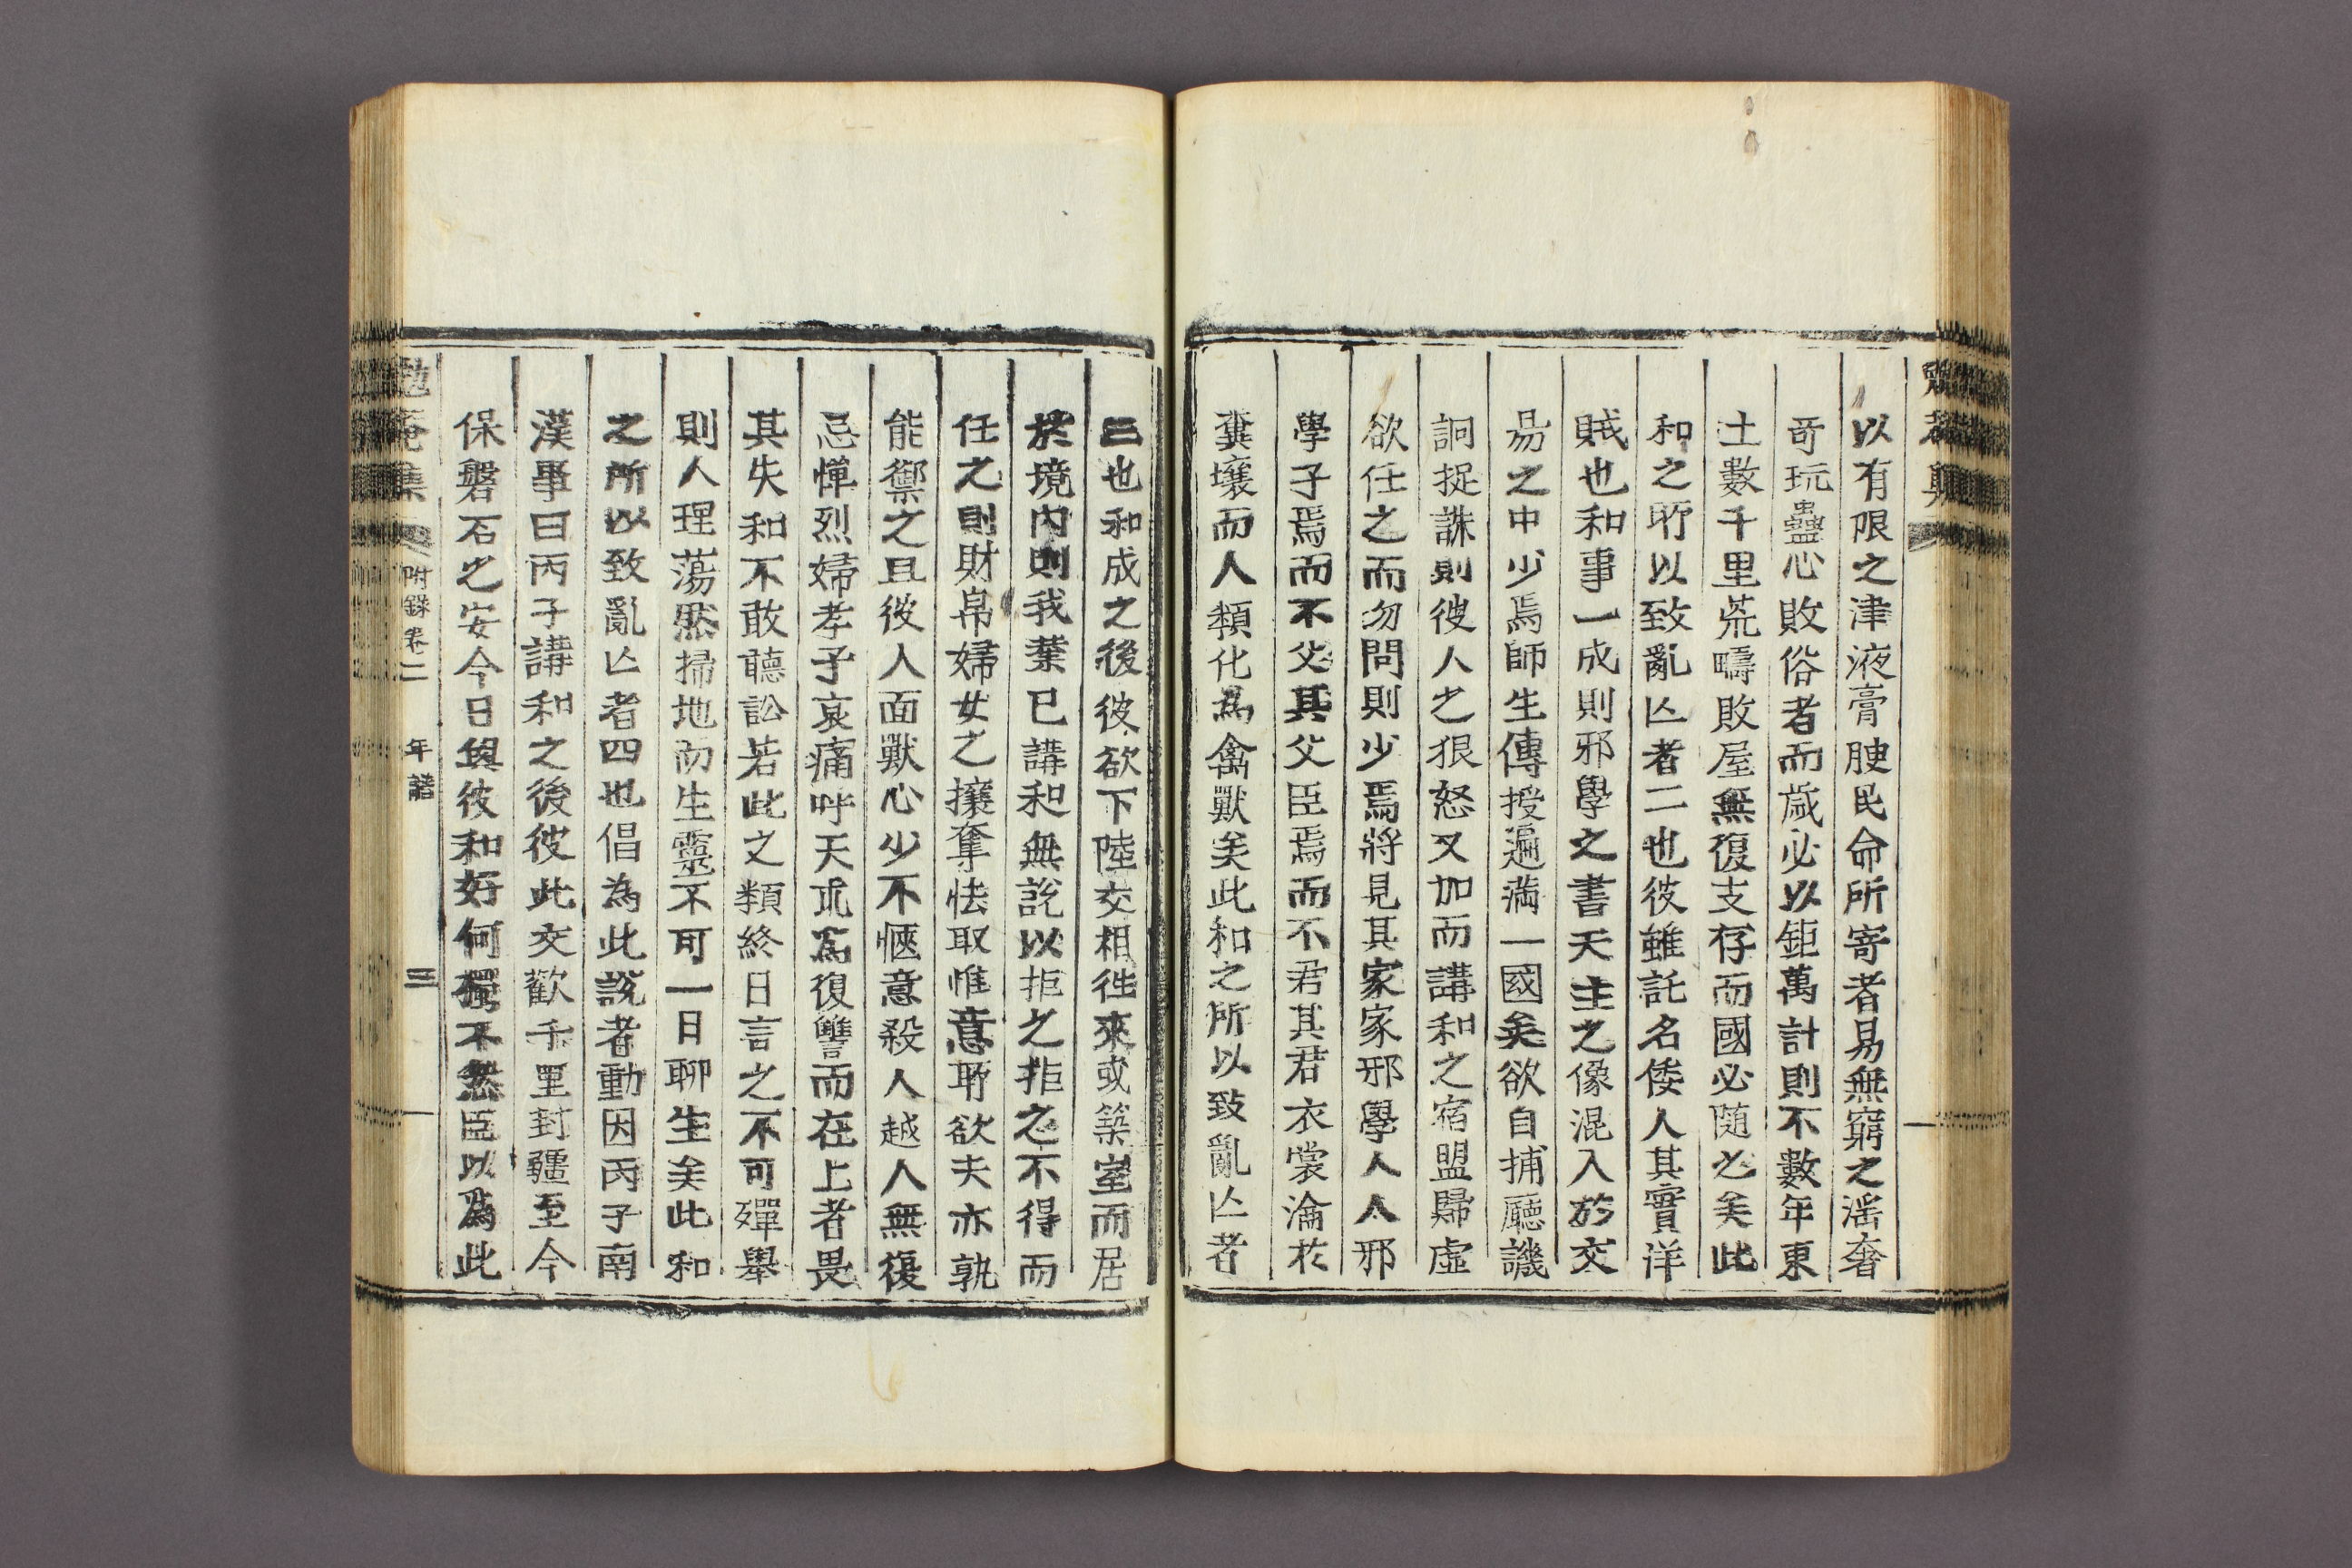 以有限之津液膏腴民命所寄者易無窮之滛奢
奇玩蠱心敗俗者而歲必以鉅萬計則不數年東
土數千里荒疇敗屋無復支存而國必随之矣此
和之所以致亂亾者二也彼雖託名倭人其實洋
賊也和事一成則邪學之書天主之像混入於交
易之中少焉師生傳授遍滿一國矣欲自捕廳譏
詗捉誅則彼人之狠怒又加而講和之宿盟歸虛
欲任之而勿問則少焉將見其家家邪學人人邪
學子焉而不父其父臣焉而不君其君衣裳淪於
糞壤而人類化爲禽獸矣此和之所以致亂亾者
三也和成之後彼欲下陸交相徃來或築室而居
於境內則我業已講和無說以拒之拒之不得而
任之則財帛婦女之攘奪怯取惟意所欲夫亦孰
能禦之且彼人面獸心少不愜意殺人越人無復
忌憚烈婦孝子哀痛呼天求爲復讐而在上者畏
其失和不敢聽訟若此之類終日言之不可殫舉
則人理蕩然掃地而生靈不可一日聊生矣此和
之所以致亂亾者四也倡為此說者動因丙子南
漢事曰丙子講和之後彼此交歡千里封疆至今
保磐石之安今日與彼和好何獨不然臣以爲此
勉菴集 附錄卷二 年譜 三